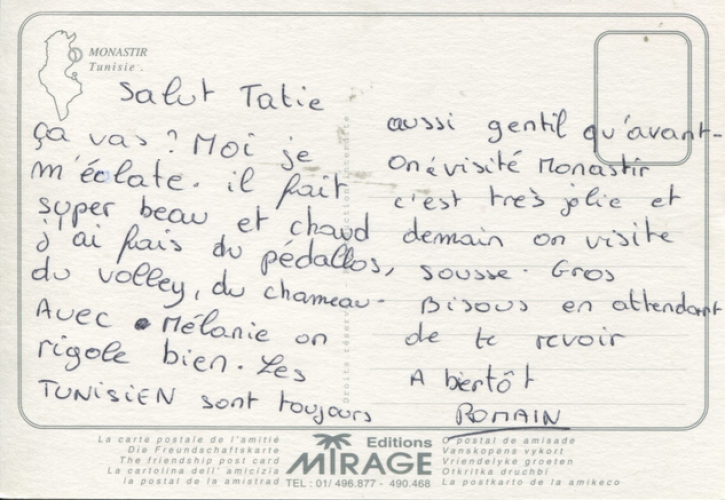 MONASTIR
Tunisie.
Salut Tatie
ça vas ? Moi je
m'éclate. il fait
super beau et chaud
j'ai fais du pédallos,
du volley, du chameau.
Avec Mélanie on
rigole bien. Les
TUNISIEN sont toujours
aussi gentil qu'avant-
on à visité Monastir
c'est très jolie et
demain on visite
sousse. Gros
Bisous en attendant
de te revoir
A bientôt
ROMAIN
La carte postale de l'amitié
Die Freundschaftskarte
The friendship post card
La cartolina dell' amicizia
la postal de la amistrad
Editions
MIRAGE
TEL : 01/ 496.877 - 490.468
O postal de amisade
Vanskopens vykort
Vriendelyke groeten
Otkritka druchbi
La postkarto de la amikeco